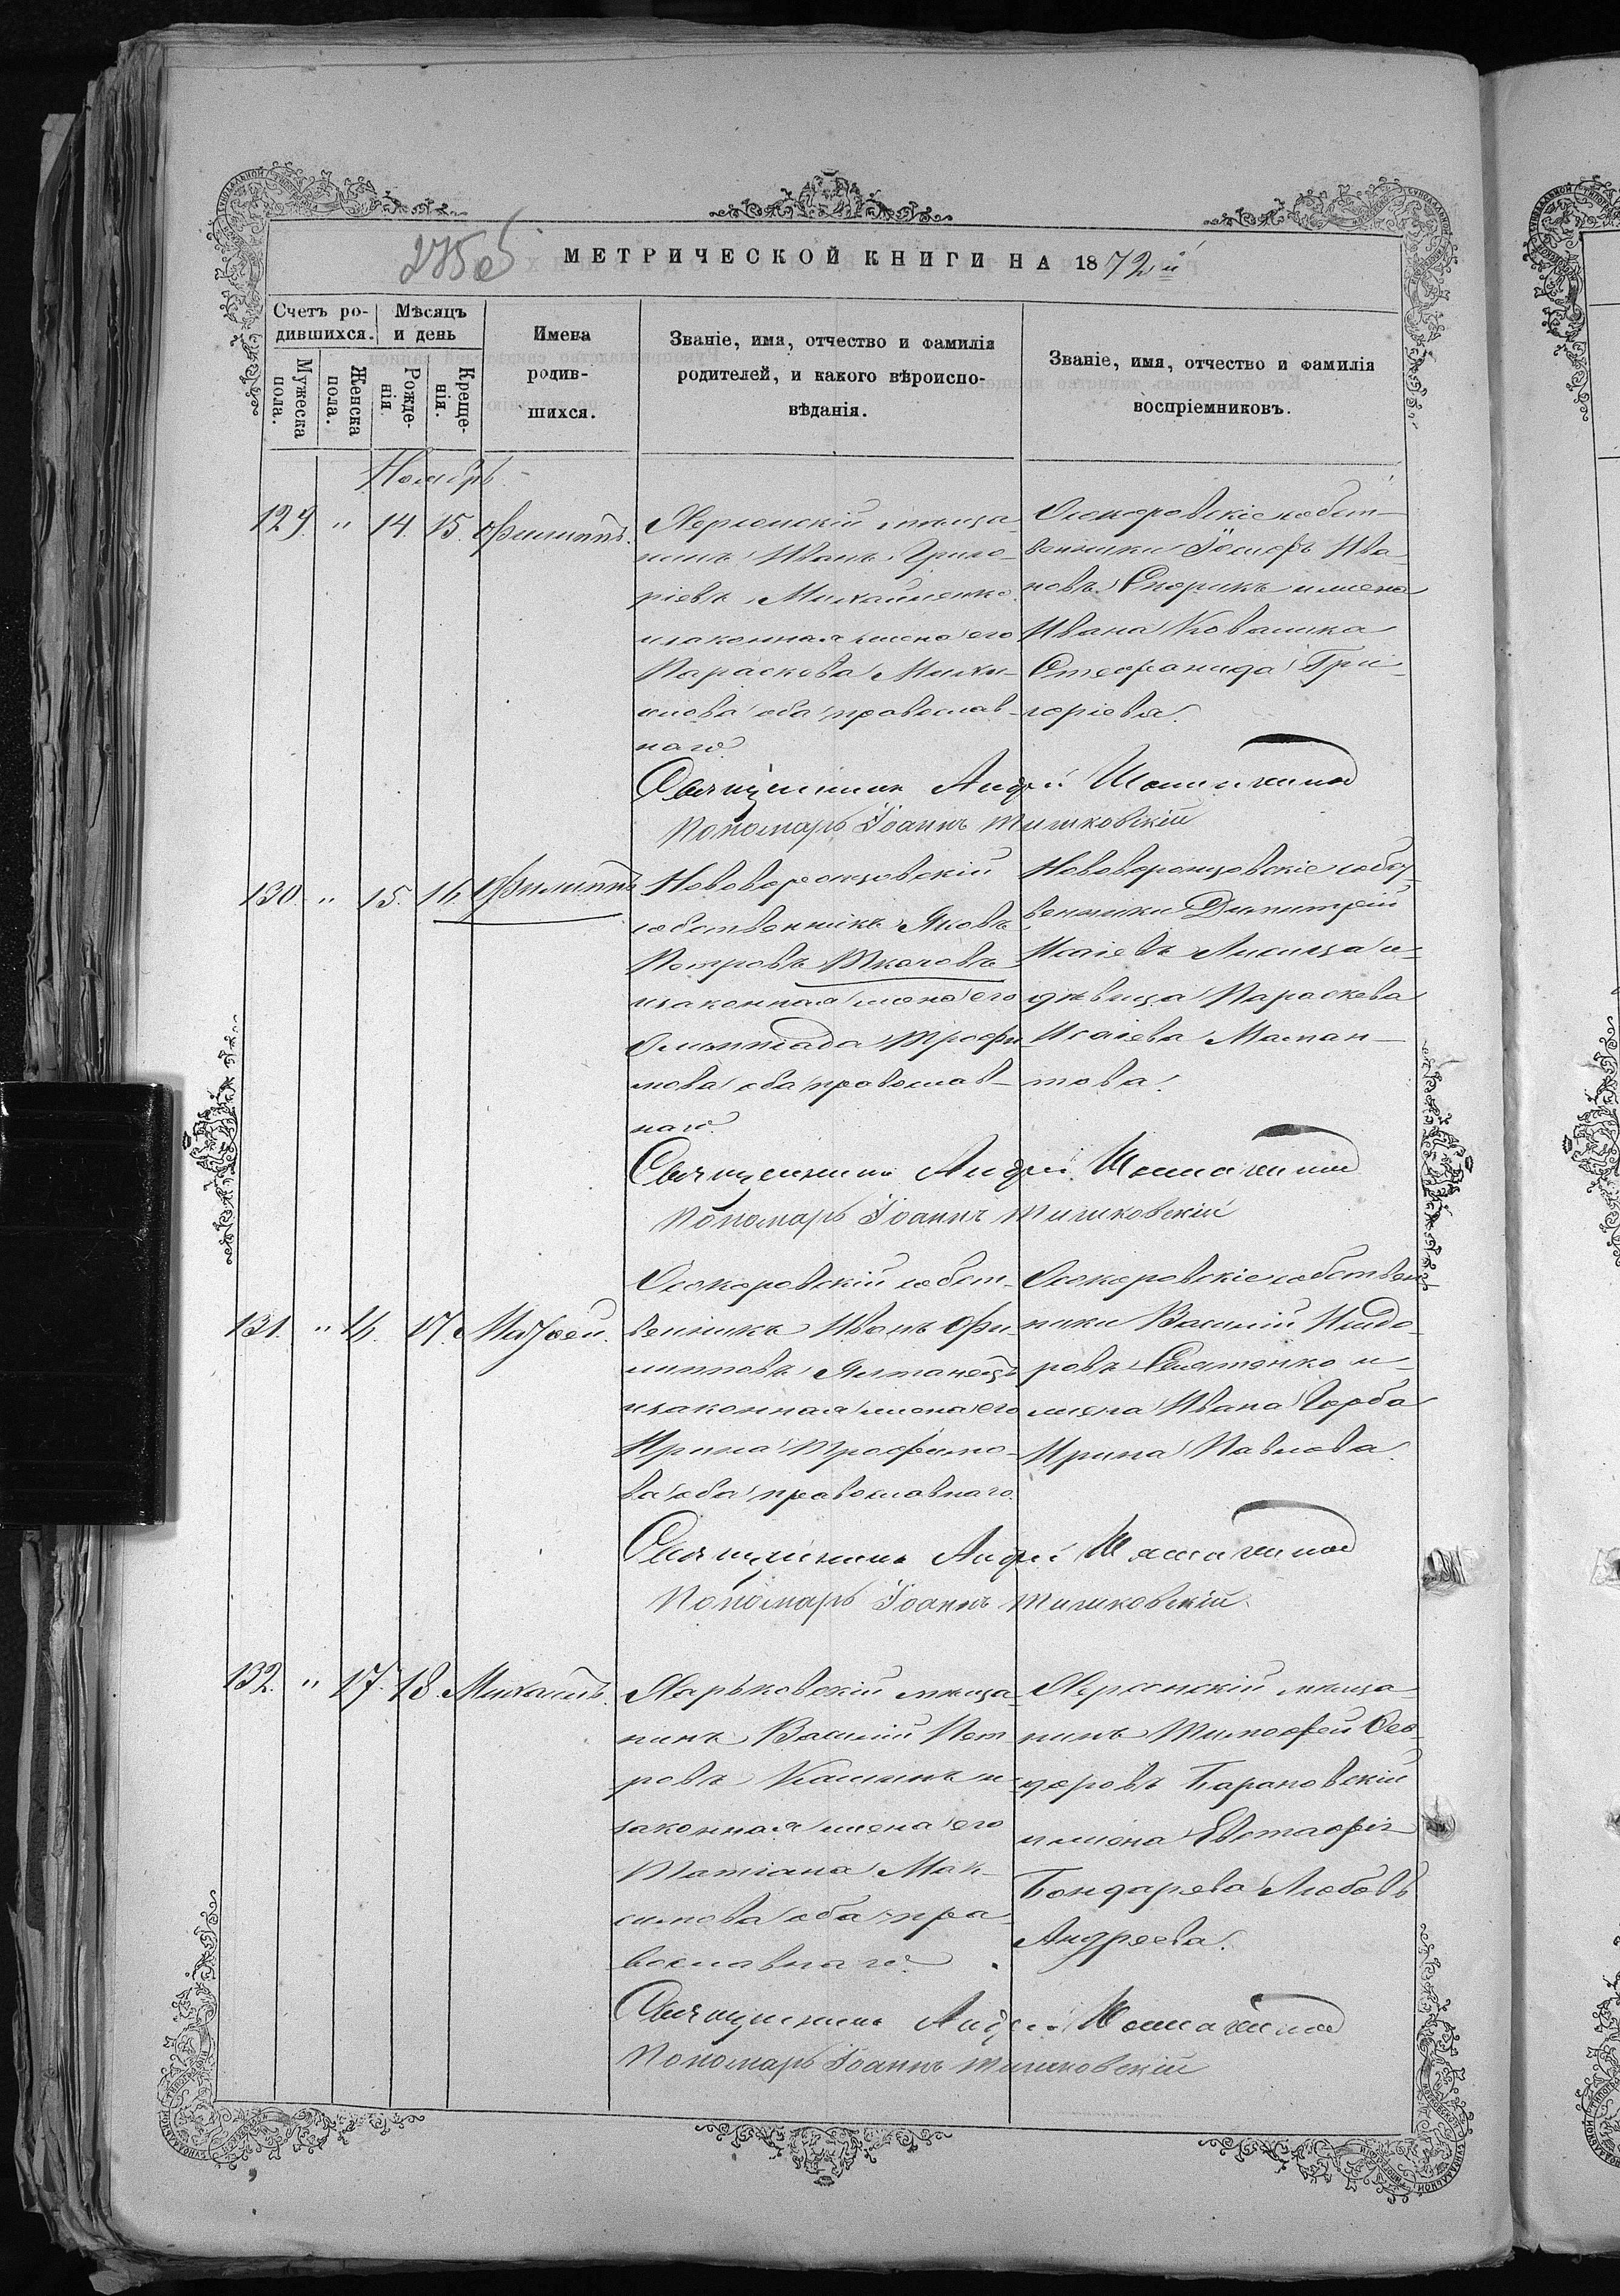 275 об
МЕТРИЧЕСКОЙ КНИГИ НА 1872й
Счетъ ро-
дившихся.
Мужеска
пола.
Женска
пола.
Мѣсяцъ
и день
Рожде-
нія.
Креще-
нія.
Имена
родив-
шихся.
Званіе, имя, отчество и фамилія
родителей, и какого вѣроиспо-
вѣданія.
Званіе, имя, отчество и фамилія
воспріемниковъ.
Ноябрь
129. " 14. 15. Филиппъ.
Херсонскій мѣща-
нинъ Иванъ Григо-
ріевъ Михайленко
и законная жена его
Параскева Михи-
лова оба православ-
наго
Осокоровскіе собст-
венники Іосифъ Ива-
новъ Скорикъ и жена
Ивана Ковалика
Стефанида Гри-
горіева.
Священникъ Андрей
Пономарь Іоаннъ Тишковскій
130. " 15. 16. Филиппъ
Нововоронцовскій
собственникъ Яковъ
Петровъ Ткачовъ
и законная жена его
Олимпіада Трофи-
мова оба православ-
наго.
Нововоронцовскіе собст-
венники Димитрій
Исаіевъ Лисица и
дѣвица Параскева
Исаіева Маман-
това.
Священникъ Андрей
Пономарь Іоаннъ Тишковскій
131. " 16. 17. Матѳей.
Осокоровскій собст-
венникъ Иванъ Фи-
липповъ Ялтанецъ
и законная жена его
Ирина Трофимо-
ва оба православнаго.
Осокоровскіе собствен-
ники Василій Исидо-
ровъ и
жена Ивана Горба
Ирина Павлова.
Священникъ Андрей
Пономарь Іоаннъ Тишковскій
132. " 17. 18. Михаилъ.
Харьковскій мѣща-
нинъ Василій Пет-
ровъ и
законная жена его
Татіана Мак-
симова оба пра-
вославнаго.
Херсонскій мѣща-
нинъ Тимофей Ѳео-
доровъ Барановскій
и жена Евстафія
Бондарева Любовь
Андреева.
Священникъ Андрей
Пономарь Іоаннъ Тишковскій